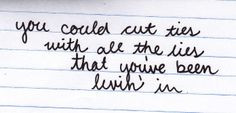 you could cut ties
with all the lies
that you've been
livin' in